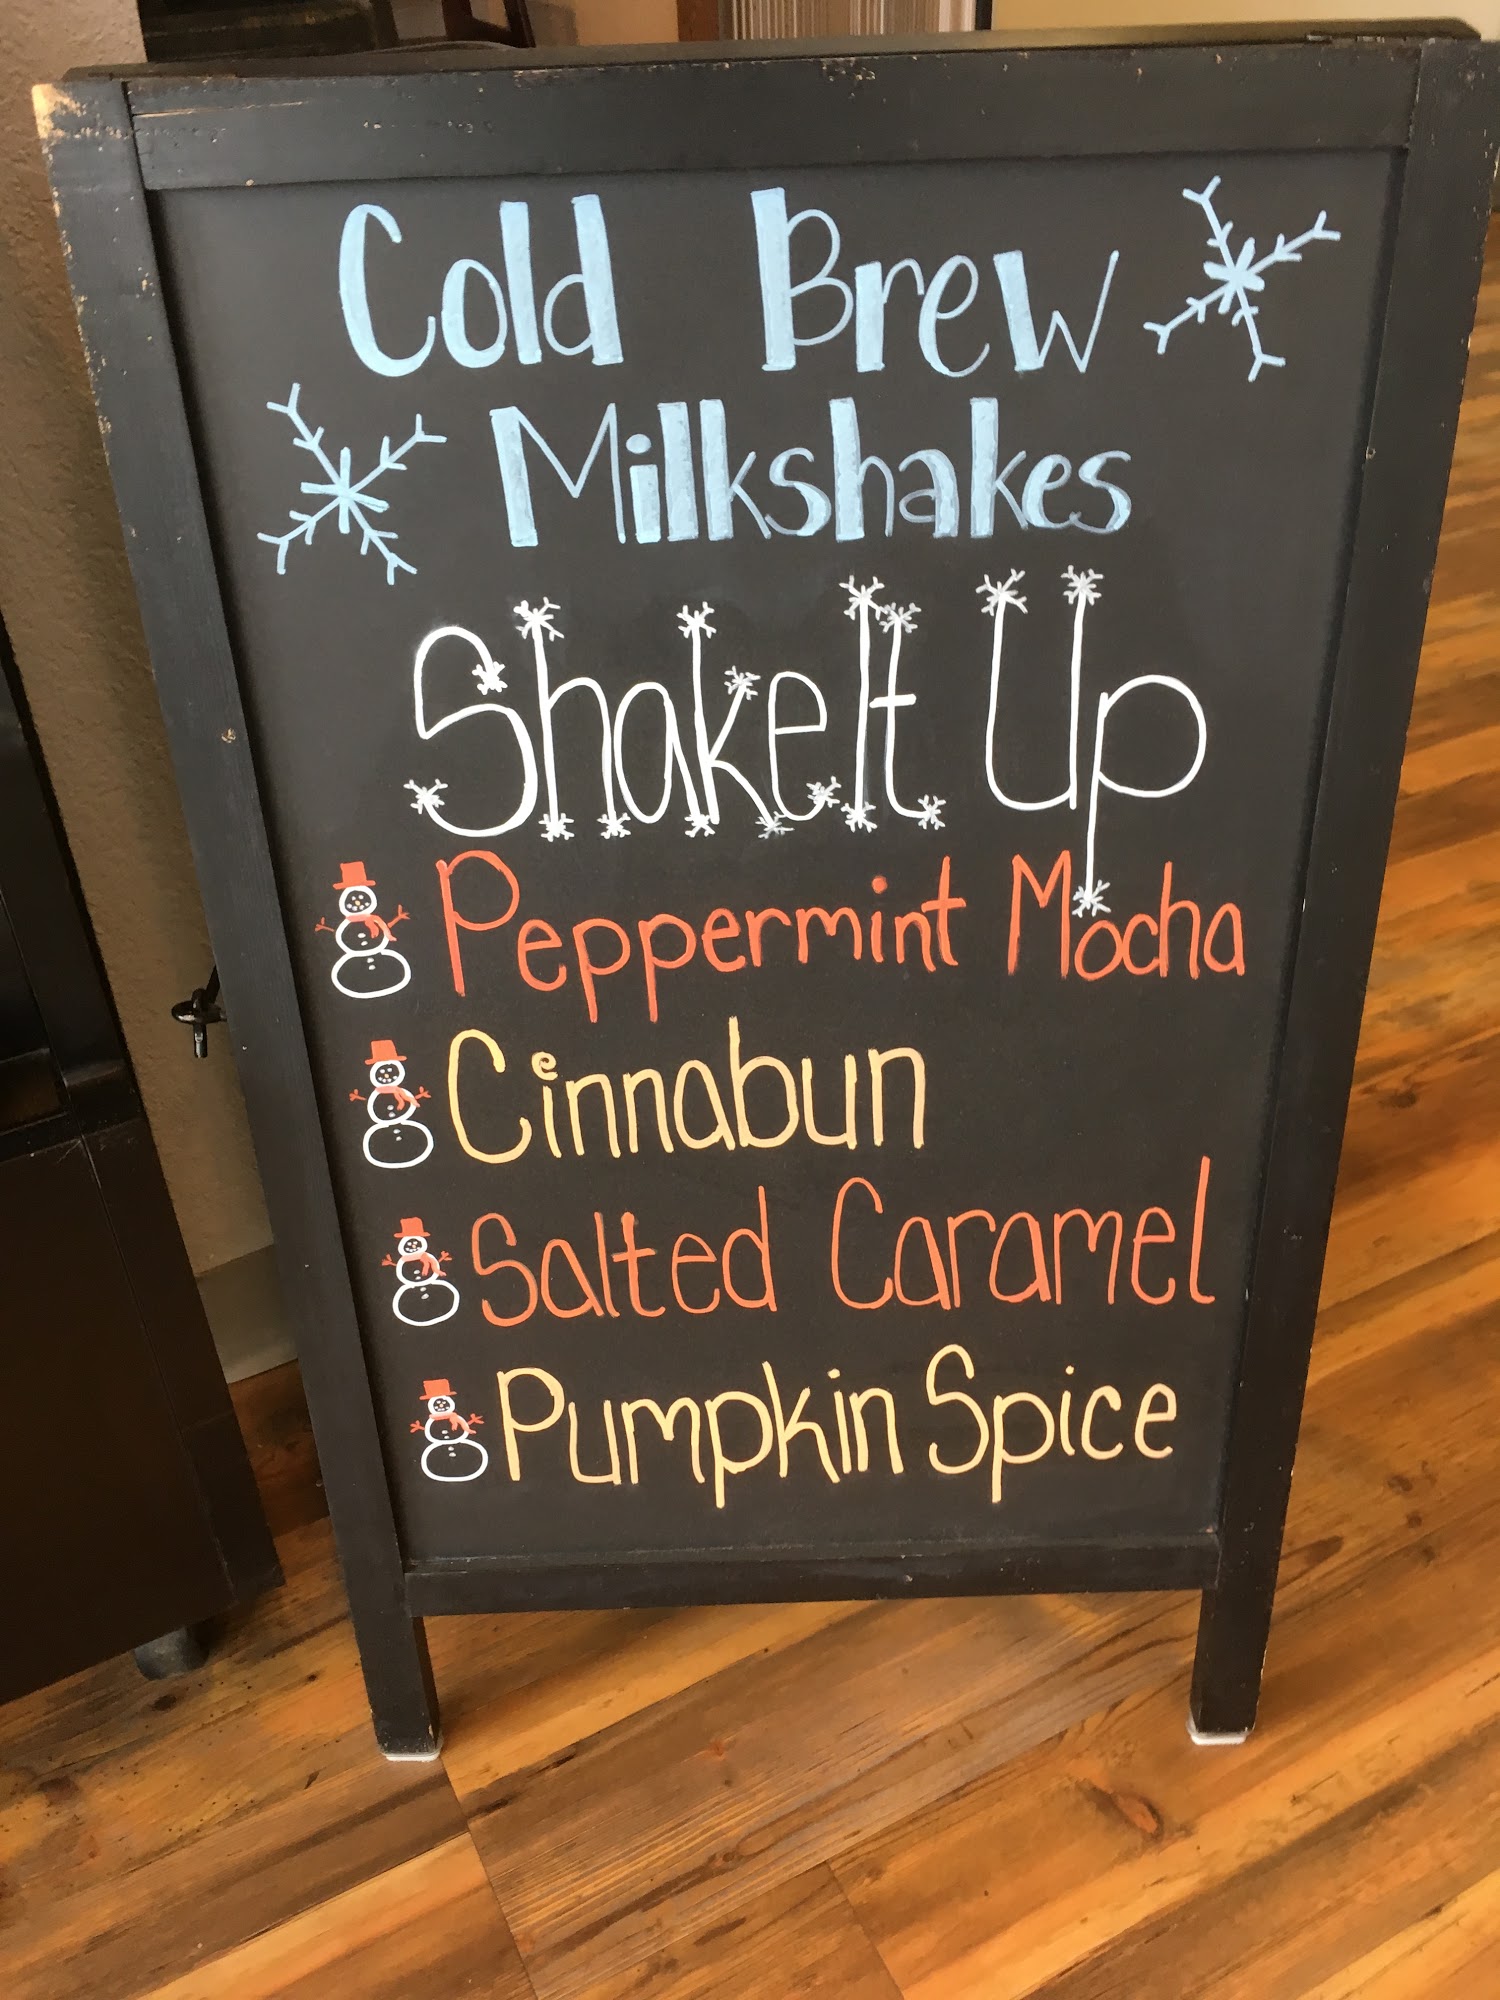 Cold Brew
Milkshakes
Shake It Up
Peppermint Mocha
Cinnabun
Salted Caramel
Pumpkin Spice